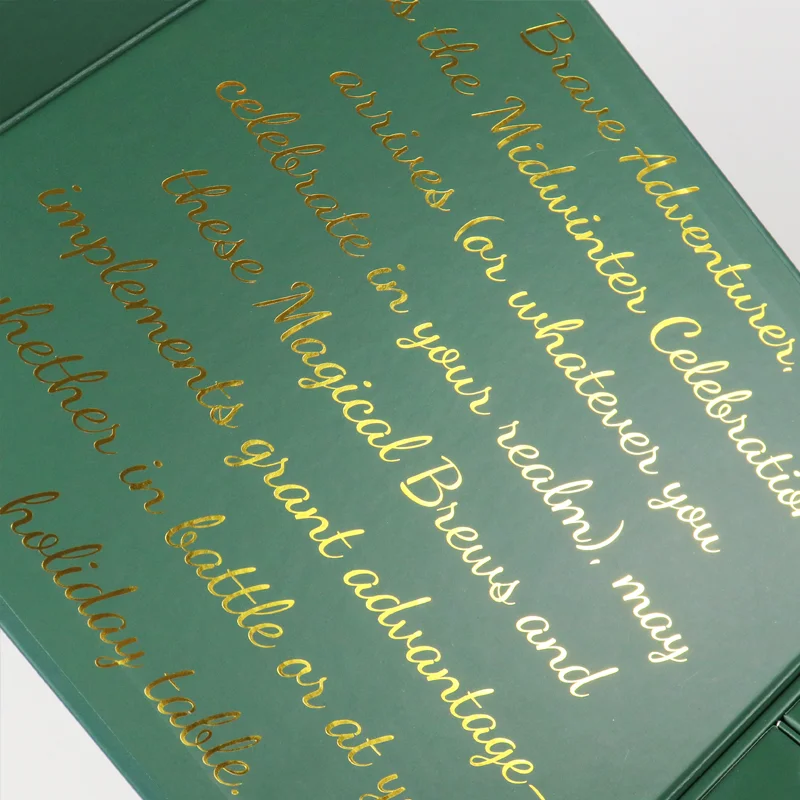 Brave Adventurer,
s the Midwinter Celebration
arrives (or whatever you
celebrate in your realm), may
these Magical Brews and
implements grant advantage—
hether in battle or at y
holiday table.